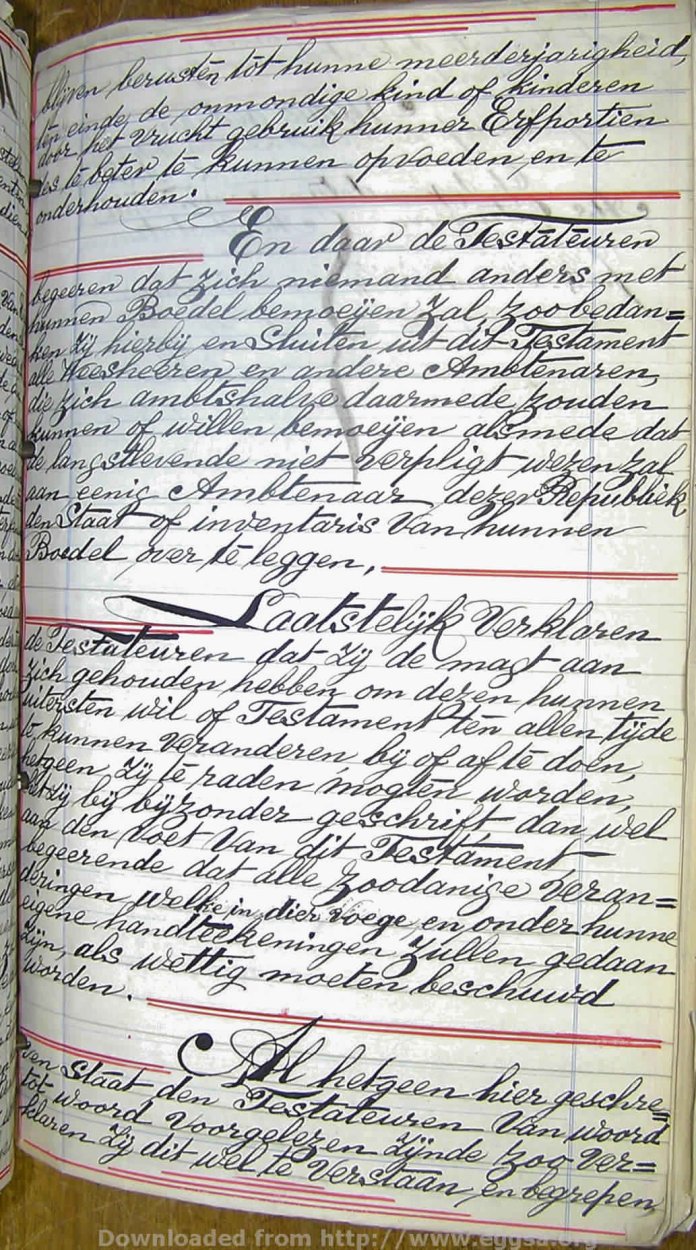 blijven berusten tot hunne meerderjarigheid,
ten einde de onmondige kind of kinderen
door het vrucht gebruik hunner Erfportien
des te beter te kunnen opvoeden, en te
onderhouden.
En daar de Testateuren
begeeren dat zich niemand anders met
hunnen Boedel bemoeijen zal, zoo bedan=
ken zij hierbij en Sluiten uit dit Testament
alle Weesheeren en andere Ambtenaren,
die zich ambtshalve daarmede zouden
kunnen of willen bemoeijen alsmede dat
de langstlevende niet verpligt wezen zal
aan eenig Ambtenaar dezer Republiek
den Staat of inventaris van hunnen
Boedel over te leggen,
Laatstelijk Verklaren
de Testateuren dat zij de magt aan
zich gehouden hebben om dezen hunnen
uitersten wil of Testament ten allen tijde
te kunnen veranderen bij of af te doen,
hetgeen zij te raden mogten worden,
hetzij bij bijzonder geschrift, dan wel
aan den voet van dit Testament
begeerende dat alle zoodanige veran=
deringen welke in dier voege, en onder hunne
eigene handteekeningen zullen gedaan
zijn, als wettig moeten beschuwd
worden.
Al hetgeen hier geschre=
ven staat den Testateuren van woord
tot woord voorgelezen zijnde zoo ver=
klaren zij dit wel te verstaan, en begrepen
Downloaded from http://www.eggsa.org